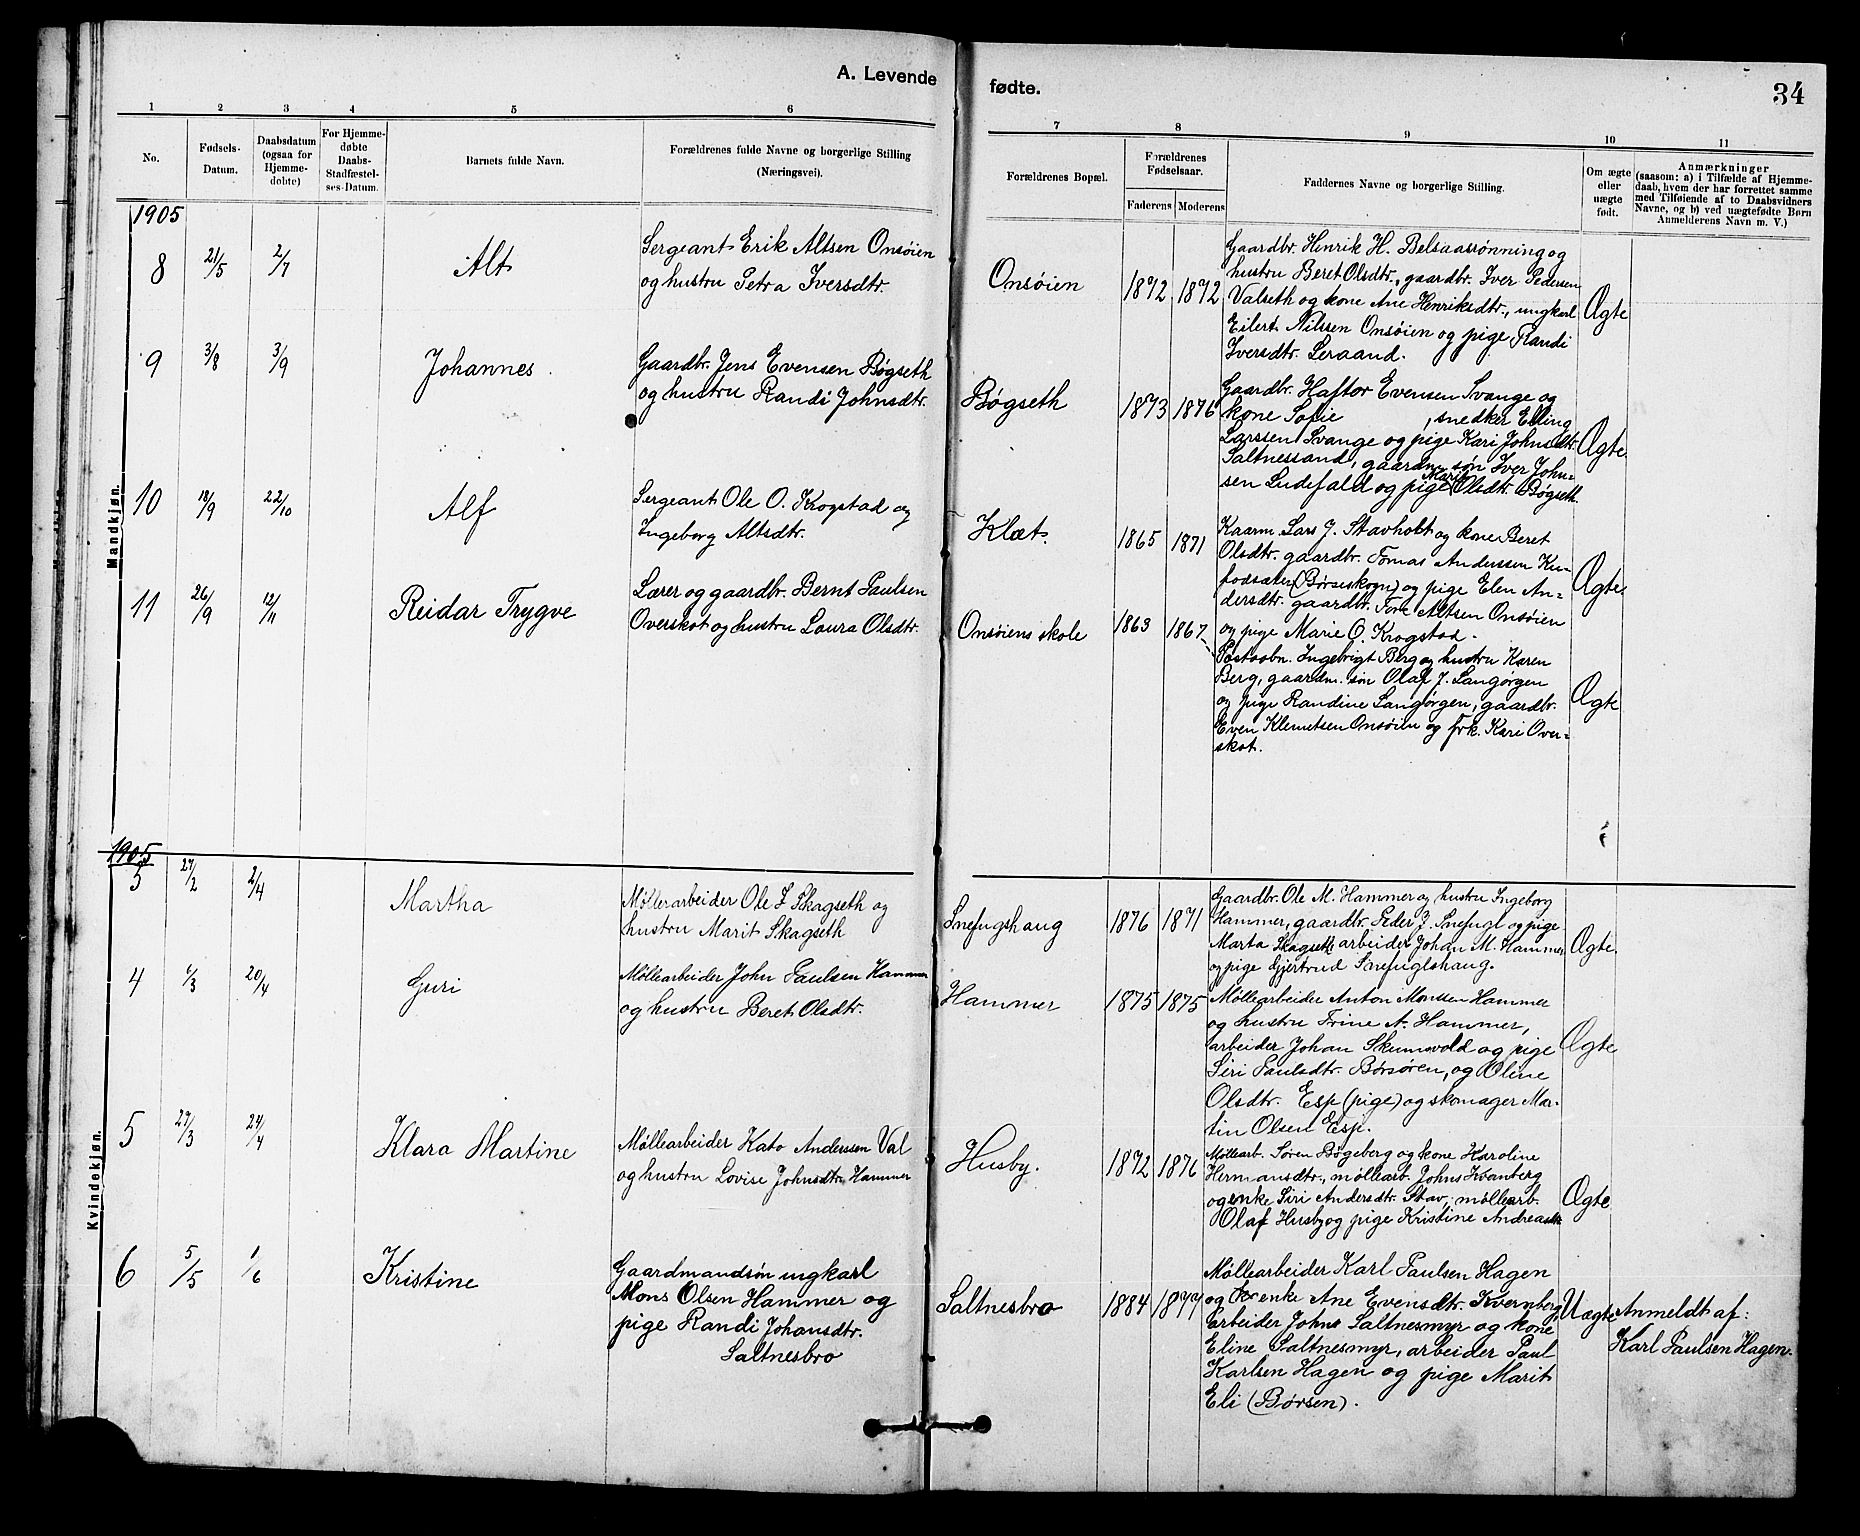 A. Levende fødte.
34
1 2 3 4 5 6 7 8 9 10 11
No.
Fødsels-
Datum.
Daabsdatum
(ogsaa for
Hjemme-
døbte)
For Hjemme-
døbte
Daabs-
Stadfæstel-
ses-Datum.
Barnets fulde Navn.
Forældrenes fulde Navne og borgerlige Stilling
(Næringsvei).
Forældrenes Bopæl.
Forældrenes
Fødselsaar.
Faderens Moderens
Faddernes Navne og borgerlige Stilling.
Om ægte
eller
uægte
født.
Anmærkninger
(saasom: a) i Tilfælde af Hjemme-
daab, hvem der har forrettet samme
med Tilføiende af to Daabsvidners
Navne, og b) ved uægtefødte Børn
Anmelderens Navn m. V.)
Mandkjøn.
1905
8 21/5 2/7 Alt
Sergeant Erik Altsen Onsøien
og hustru Petra Iversdtr.
Onsøien 1872 1872
Gaardbr. Henrik H. Belsaasrønning og
hustru Beret Olsdtr., gaardbr. Iver Pedersen
Valseth og kone Ane Henriksdtr., ungkarl
Eilert Nilssen Onsøien og pige Randi
Iversdtr. Leraand.
Ægte
9 3/8 3/9 Johannes.
Gaardbr. Jens Evensen Bøgseth
og hustru Randi Johnsdtr.
Bøgseth 1873 1876
Gaardbr. Haftor Evensen Svange og
kone Sofie , snedker Elling
Larssen Svange og pige Kari Johnsdtr.
Saltnessand, gaardm. søn Iver John-
sen Ludefald og pige Marit Olsdtr. Bøgseth.
Ægte.
10 18/9 22/10 Alf
Sergeant Ole O. Krogstad og
Ingeborg Altsdtr.
Klæt. 1865 1871
Kaarm. Lars J. Stavholt og kone Beret
Olsdtr. gaardbr. Tomas Anderssen Ku-
fodsæter (Børseskogn) og pige Elen An-
dersdtr. gaardbr. Tore Altsen Onsøien
og pige Marie O. Krogstad.
Ægte.
11 26/9 12/11 Reidar Trygve
Lærer og gaardbr. Bernt Paulsen
Overskot og hustru Laura Olsdtr.
Onsøiens skole 1863 1867
Postaabn. Ingebrigt Berg og hustru Karen
Berg, gaardm. søn Olaf J. Langørgen
og pige Randine Langørgen, gaardbr.
Even Klemetsen Onsøien og frk. Kari Over-
skot.
Ægte
Kvindekjøn.
1905
3 27/2 2/4 Martha
Møllerarbeider Ole J Skagseth og
hustru Marit Skagseth
Snefugshaug 1876 1871
Gaardbr. Ole M. Hammer og hustru Ingeborg
Hammer, gaardbr. Peder J. Snefugl og pige
Marta Skagseth arbeider Johan M. Hammer
og pige Gjertrud Snefuglshaug.
Ægte.
4 /3 20/4 Guri
Møllearbeider John Paulsen Hammer
og hustru Beret Olsdtr.
Hammer 1875 1875
Møllearbeider Anton Monssen Hammer
og hustru Trine A. Hammer,
arbeider Johan Skumsvold og pige
Siri Paulsdtr. Børsøren, og Oline
Olsdtr. Esp (pige) og skomager Mar-
tin Olsen Esp.
Ægte
5 27/3 24/4 Klara Martine
Møllearbeider Kato Anderssen Val
og hustru Lovise Johnsdtr Hammer
Husby. 1872 1876
Møllearb. Søren Bøgeberg og kone Karoline
Hermansdtr., møllearb. Johns Kvamberg
og enke Siri Andersdtr. Stav, møllearb.
Olaf Husby og pige Kristine
Ægte
6 5/5 1/6 Kristine
Gaardmandsøn ungkarl
Mons Olsen Hammer og
pige Randi Johansdtr.
Saltnesbro
Saltnesbro 1884 1877
Møllearbeider Karl Paulsen Hagen
og enke Ane Evensdtr. Kvernberg
arbeider Johns Saltnesmyr og kone
Eline Saltnesmyr, arbeider Paul
Karlsen Hagen og pige Marit
Eli (Børsen).
Uægte
Anmeldt af:
Karl Paulsen Hagen.